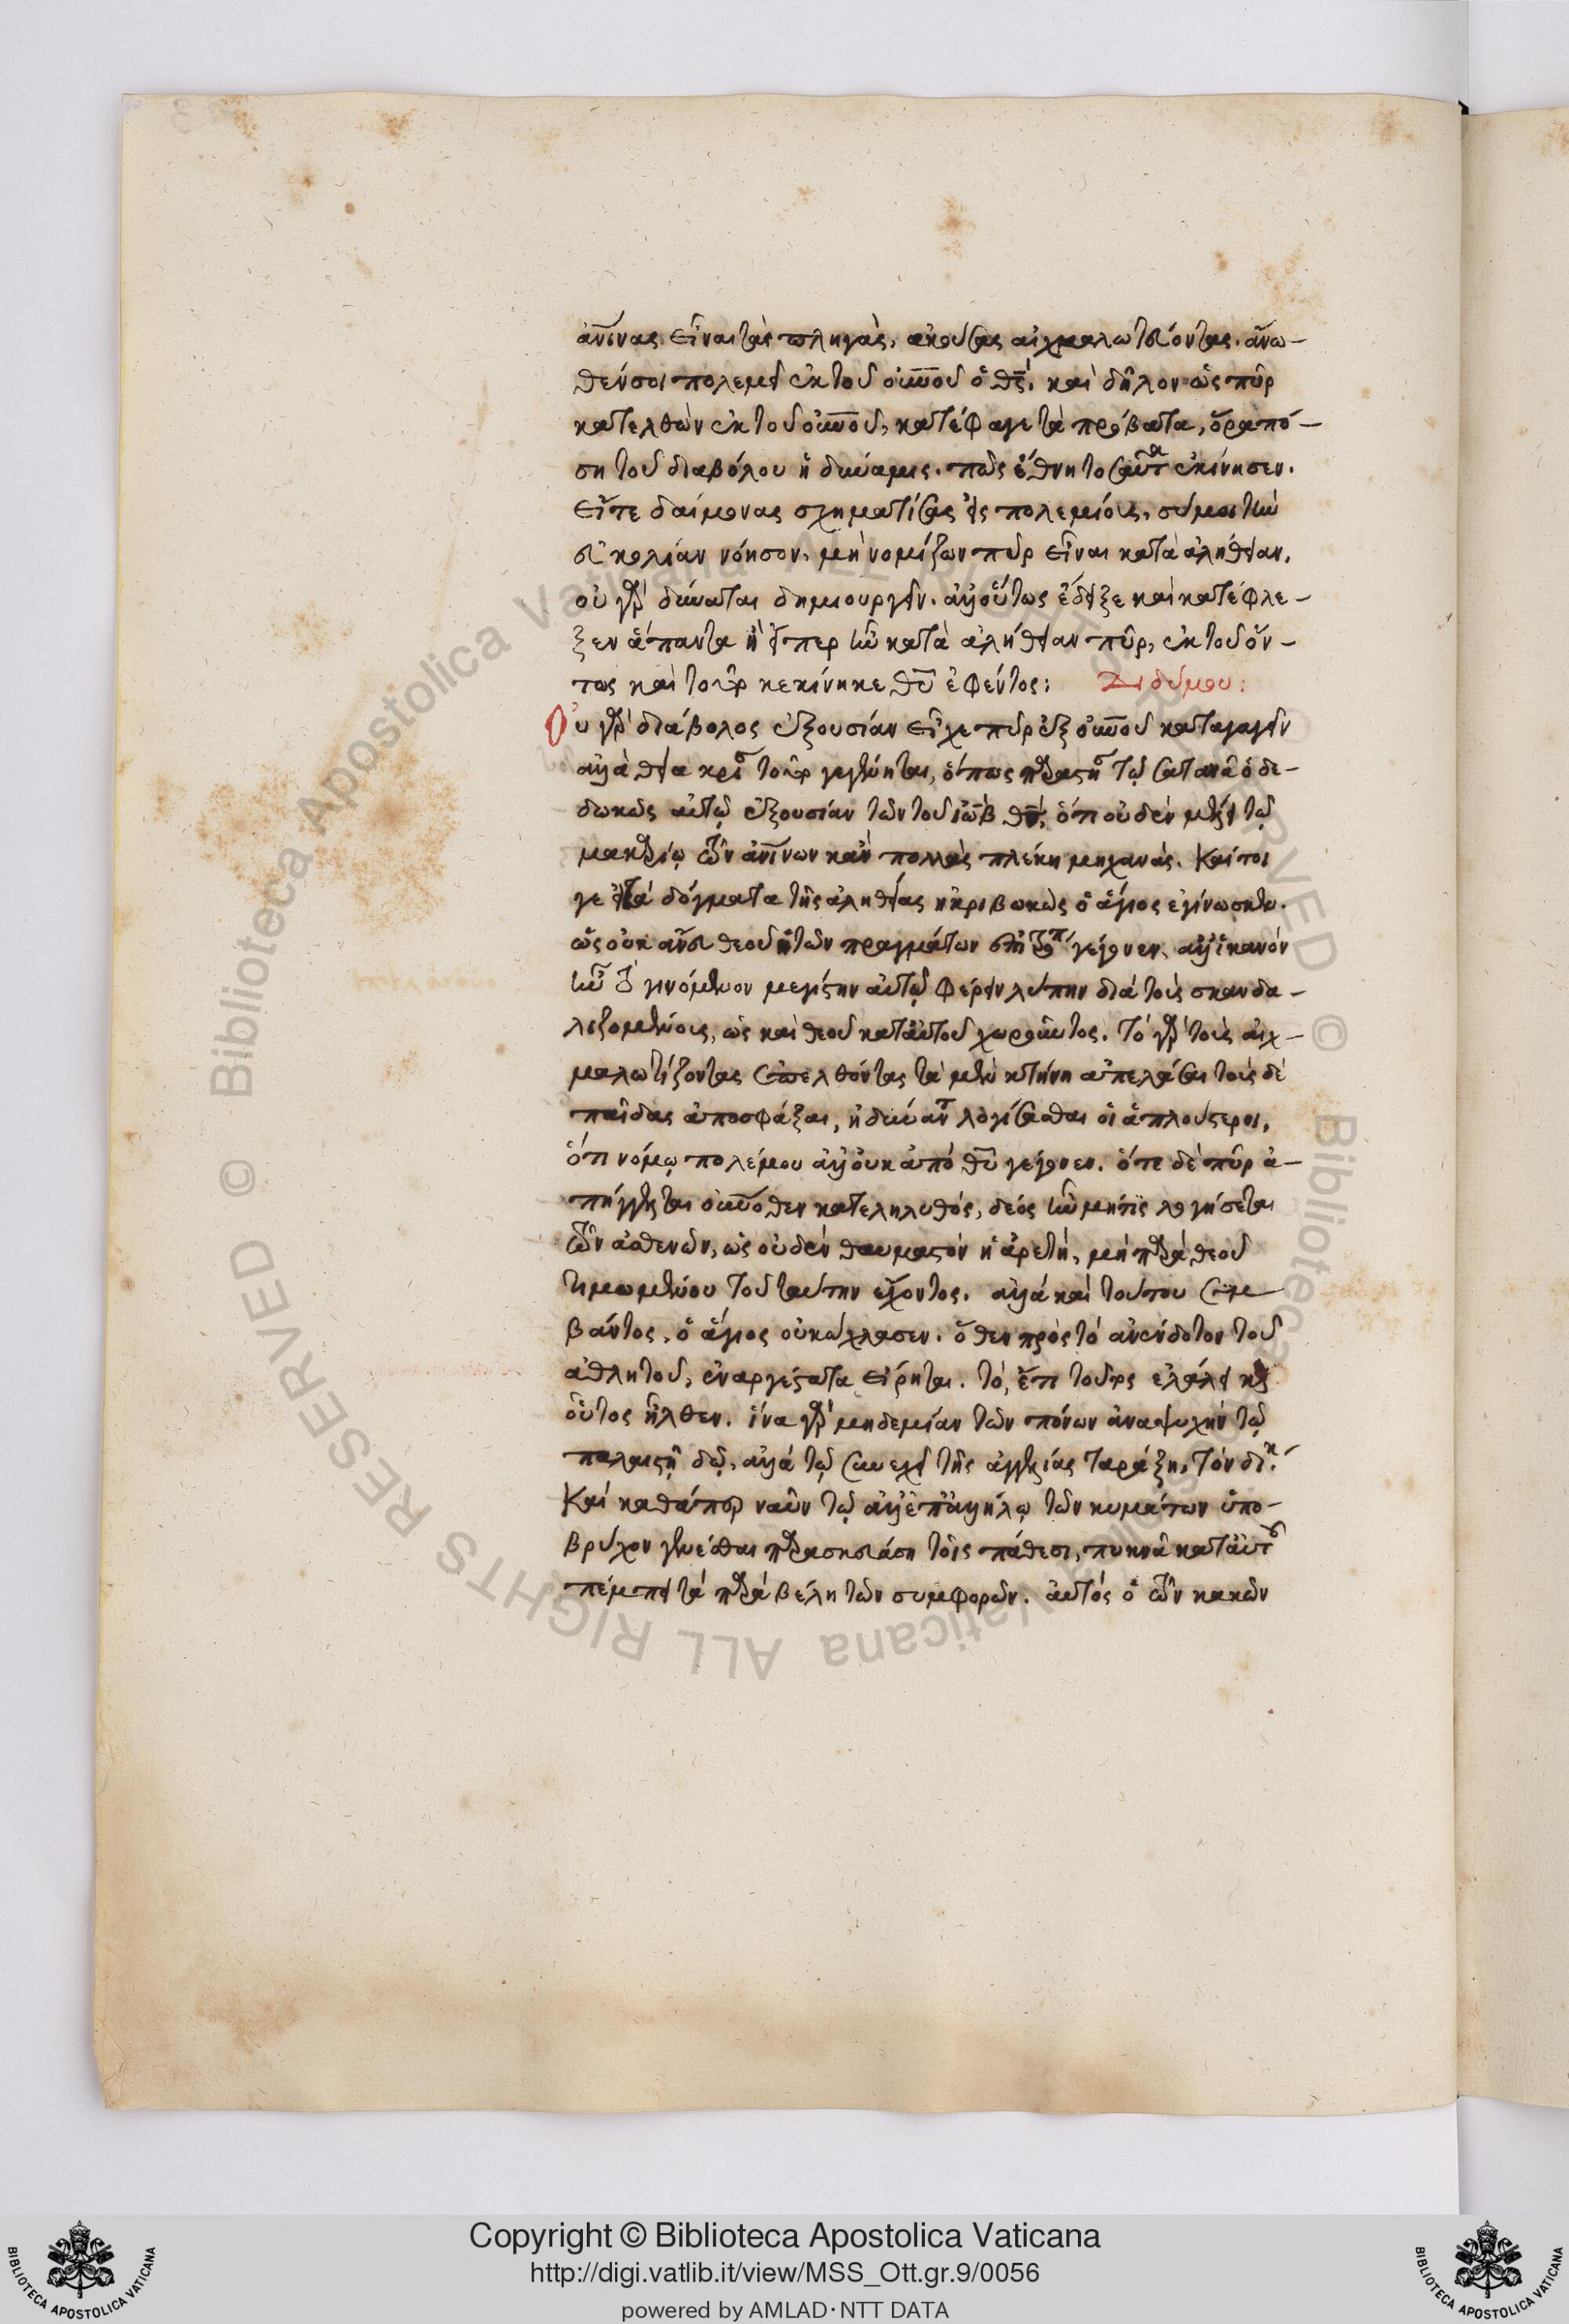 ἀνίνας εἶναι τὰς πληγὰς, ἀκούσας αἰχμαλωτεύοντας. ἄνω-
θέν σοι πολεμεῖ ἐκ τοῦ οὐνοῦ ὁ θς. καὶ δῆλον ὡς πῦρ
κατελθὼν ἐκ τοῦ οὐνοῦ, κατέφαγε τὰ πρόβατα, ὅρα πό-
ση τοῦ διαβόλου ἡ δύναμις. πῶς ἔθνη τοσαῦτα ἐκίνησεν.
Εἴτε δαίμονας σχηματίσας εἰς πολεμίους, σύ μοι τὴν
νόησον, μὴ νομίζων πῦρ εἶναι κατὰ ἀλήθειαν.
οὐ γὰρ δύναται δημιουργεῖν. ἀλλ' οὕτως ἔδειξε καὶ κατέφλε-
ξεν ἅπαντα ἢ εἴπερ ἦν κατὰ ἀλήθειαν πῦρ, ἐκ τοῦ ὄν-
τος καὶ τοῦτο κεκίνηκε θῦ ἐφέντος: Διδύμου:
Οὐ γὰρ διάβολος ἐξουσίαν εἶχε πῦρ ἐξ οὐνοῦ καταγαγεῖν
ἀλλὰ θεία κρίσει τοῦτο γεγένηται, ὅπως παραστῇ τῷ σατανᾷ ὁ δε-
δωκὼς αὐτῷ ἐξουσίαν τῶν τοῦ ἰὼβ θς, ὅτι οὐδὲν μέλει τῷ
μακαρίῳ τῶν ἀνίνων κἂν πολλὰς πλέκῃ μηχανάς. Καίτοι
γε τὰ δόγματα τῆς ἀληθείας ἠκριβωκὼς ὁ ἅγιος ἐγίνωσκεν.
ὡς οὐκ ἄνευ θεοῦ τῶν πραγμάτων γέγονεν, ἀλλ' ἱκανὸν
ἦν τὸ γινόμενον μεγίστην αὐτῷ φέρειν λύπην διὰ τοὺς σκανδα-
λιζομένους, ὡς καὶ θεοῦ κατ' αὐτοῦ χωροῦντος. Τὸ γὰρ τοὺς αἰχ-
μαλωτίζοντας ἐπελθόντας τὰ μὲν κτήνη ἀπελάσαι τοὺς δὲ
παῖδας ἀποσφάξαι, ἠδύναντο λογίσασθαι οἱ ἁπλούστεροι,
ὅτι νόμῳ πολέμου ἀλλ' οὐκ ἀπὸ θῦ γέγονεν. ὅτε δὲ πῦρ ἀ-
πήγγελται οὐνόθεν κατεληλυθὸς, δέος ἦν μή τις λογήσεται
τῶν ἀσθενῶν, ὡς οὐδὲν θαυμαστὸν ἡ ἀρετὴ, μὴ παρὰ θεοῦ
τιμωμένου τοῦ ταύτην ἔχοντος. ἀλλὰ καὶ τούτου συμ-
βάντος, ὁ ἅγιος οὐκ ὤκλασεν. ὅθεν πρὸς τὸ ἀνένδοτον τοῦ
ἀθλητοῦ, ἐναργέστατα εἴρηται. τὸ, ἔτι τούτου ἐλάλει καὶ
οὗτος ἦλθεν. ἵνα γὰρ μηδεμίαν τῶν πόνων ἀναψυχὴν τῷ
παλαιστῇ δῷ, ἀλλὰ τῷ συνεχεῖ τῆς ἀγγελίας ταράξῃ, τὸν δι.
Καὶ καθάπερ ναῦν τῷ ἀλλεπαλλήλῳ τῶν κυμάτων ὑπο-
βρύχον γενέσθαι παρασκευάσῃ τοῖς πάθεσι, πυκνὰ κατ' αὐτοῦ
πέμπει τὰ παρὰ βέλη τῶν συμφορῶν. αὐτὸς ὁ τῶν κακῶν
Copyright © Biblioteca Apostolica Vaticana
http://digi.vatlib.it/view/MSS_Ott.gr.9/0056
powered by AMLAD·NTT DATA
BIBLIOTECA APOSTOLICA VATICANA
BIBLIOTECA APOSTOLICA VATICANA
© Biblioteca Apostolica Vaticana ALL RIGHTS RESERVED © Biblioteca Apostolica Vaticana ALL RIGHTS RESERVED